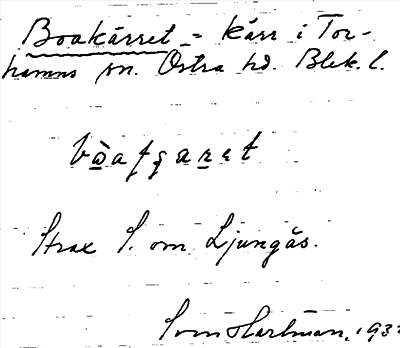 Boakärret = kärr i Tor-
hamns sn. Östra hd. Blek. l.
Strax S. om Ljungås.
Sven Hartman, 193